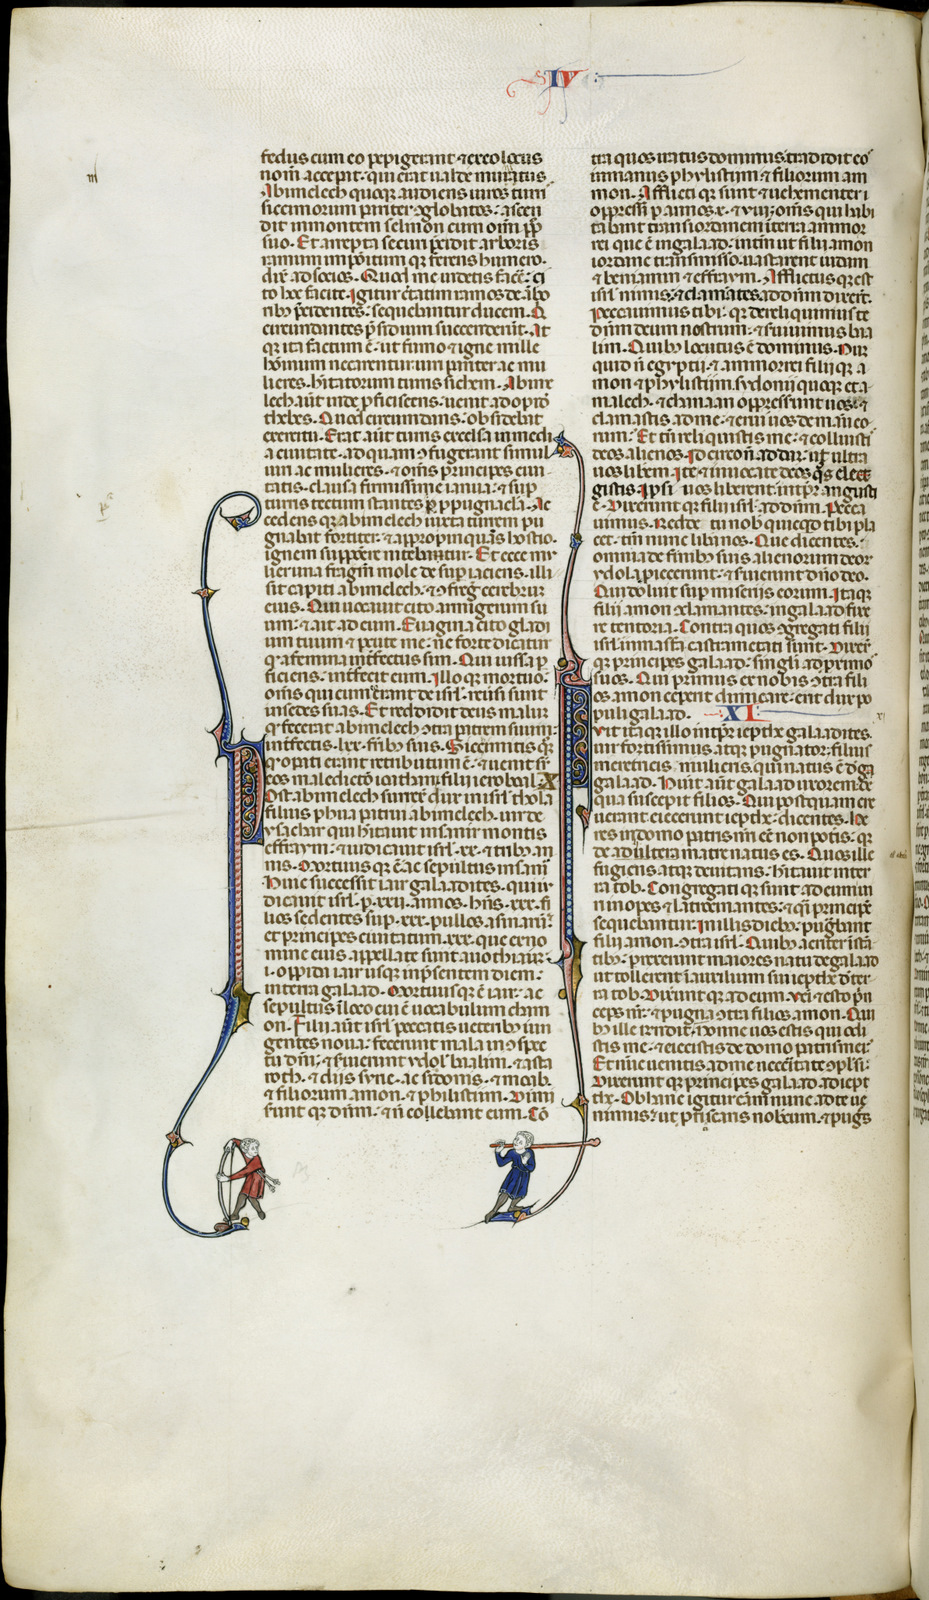 IV
fedus cum eo pepigerant ⁊ ex eo locus
nom̄ accepit · qui erat ualde munitus
Abimelech quoque audiens uiros turri
sicimorum pariter ɔglobatos · ascen
dit in montem selmon cum om̄i pp̄lo
suo · Et arrepta securi p̄cidit arboris
ramum impositum q̄ ferens humero ·
dix̄ ad socios · Quod me uidetis fac̄e · ci
to hoc facite · Igitur c̄tatim ramos de arbo
ribꝫ p̄cidentes · sequebantur ducem · Q
circundantes p̄sidium succenderūt · At
q̄ ita factum ē · ut fumo ⁊ igne mille
hōinum necarentur · uiri pariter ac mu
lieres · hītatorum turris sichem · Abime
lech aūt inde p̄ficiscens · uenit ad opidū
thebes · Quod circundans · obsidebat
exercitu · Erat aūt turris excelsa in medi
a ciuitate · ad quam ɔfugerant simul
uiri ac mulieres · ⁊ om̄s p̄ncipes ciui
tatis · clausa firmissime ianua · ⁊ sup̄
turris tectum stantes p̄ p̄pugnacla · Ac
cedens q̄ abimelech iuxta turrem pu
gnabat fortiter · ⁊ appropinquās hostio ·
ignem supp̄ere nitebatur · Et ecce mu
lier una fragm̄ mole desup̄ iaciens · illi
sit capiti abimelech · ⁊ ɔfreg̃ cerebrum
eius · Qui uocauit cito armigerum su
um · ⁊ ait ad eum · Euagina cito gladi
um tuum ⁊ pcute me · ne forte dicatur
q̄ a femina int̄fectus sim · Qui iussa p̄
ficiens · int̄fecit eum · Illo q̄ mortuo ·
om̄s qui cum eo erant de isrl̄ · reūsi sunt
in sedes suas · Et reddidit deus malum
q̄ fecerat abimelech ɔtra patrem suum ·
int̄fectis · lxx · fr̄ibꝫ suis · Sicimitis q̄q̄
q̄ opati erant retributum ē · ⁊ uenit sr̄
eos maledictō ioathan filii ieroboal · X
Post abimelech surrex̄ dux in isrl̄ thola
filius phua patrui abimelech · uir de
ysachar qui hītauit in sanir montis
effraym · ⁊ iudicauit isrl̄ · xx · ⁊ tribꝫ an
nis · Mortuus q̄ ē ac sepultus in sanir
Huic successit iair galaadites · qui iu
dicauit isrl̄ · p̄ · xxii · annos · hn̄s · xxx · fi
lios sedentes sup̄ · xxx · pullos asinarū ·
et principes ciuitatum · xxx · que ex no
mine eius appellate sunt auoth iair ·
i · oppida iair usque in p̄sentem diem ·
in terra galaad · Mortuus q̄ ē iair · ac
sepultus in loco cui ē uocabulum cham
on · Filii aūt isrl̄ peccatis ueteribꝫ iun
gentes noua · fecerunt mala in ɔspe
ctu dn̄i · ⁊ seruierunt ydol̄ baalim · ⁊ asta
roth · ⁊ diis syrie · ac sidonis · ⁊ moab ·
⁊ filiorum amon · ⁊ philistiim · Dimi
serunt q̄ dn̄m · ⁊ n̄ collebant eum · Cō
tra quos iratus dominus tradidit eos
in manus phylistiim ⁊ filiorum am
mon · Afflicti q̄ sunt ⁊ uehementer
oppressi p̄ annos · x · ⁊ viij · om̄s qui habi
tabant trans iordanem in terra ammor
rei que ē in galaad · intm̄ ut filii amon
iordane transmisso · uastarent iudam
⁊ beniamin ⁊ effraym · Afflictus q̄ est
isrl̄ nimis · ⁊ clamantes ad dn̄m dixer̄t ·
Peccauimus tibi · q̄ dereliquimus te
dn̄m deum nostrum · ⁊ seruiuimus baa
lim · Quibꝫ locutus ē dominus · Nun
quid n̄ egyptii · ⁊ ammorrei filii q̄ a
mon ⁊ phylistiim · sydonii quoq̄ et a
malech · ⁊ chanaan oppresserunt uos · ⁊
clamastis ad me · ⁊ erui uos de manu eo
rum · Et tn̄ reliquistis me · ⁊ coluisti
deos alienos · Id circo n̄ addam · ut ultra
uos liberem · Ite ⁊ inuocate deos q̄s eleg
gistis · Ipsi uos liberent in tp̄r angusti
e · Dixerunt q̄ filii isrl̄ ad dn̄m · Pecca
uimus · Redde tu nob̄ quicqd tibi pla
cet · tm̄ nunc libera nos · Que dicentes ·
omnia de finibꝫ suis alienorum deor̄
ydola piecerunt · ⁊ seruierunt dn̄o deo ·
Qui doluit sup̄ miseriis eorum · Itaque
filii amon ɔclamantes · in galaad fixe
re tentoria · Contra quos ɔgregati filii
isrl̄ in masfa castrametati sunt · Dixer̄
q̄ principes galaad · singli ad pximos
suos · Qui primus ex nobis ɔtra fili
os amon ceperit dimicare · erit dux po
puli galaad · XI
Fuit itaq̄ illo in tp̄r iepthe galaadites ·
uir fortissimus atq̄ pugnator · filius
meretricis mulieris · qui natus ē d̄ ga
galaad · Huit aūt galaad uxorem de
qua suscepit filios · Qui postquam cre
uerant eiecerunt iepthe · dicentes · he
res in domo patris n̄ri ēē non potis · q̄
de adultera matre natus es · Quos ille
fugiens atq̄ deuitans · hitauit in ter
ra tob · Congregati q̄ sunt ad eum ui
ri inopes ⁊ latrocinantes · ⁊ q̄i principē
sequebantur · In illis diebꝫ · pugbant
filii amon · ɔtra isrl̄ · Quibꝫ acriter instā
tibꝫ · prexerunt maiores natu de galaad
ut tollerent in auxilium sui iepthe d̄ ter
ra tob · Dixerunt q̄ ad eum · Veni ⁊ esto p̄n
ceps nr̄ · ⁊ pugna ɔtra filios amon · Qui
bꝫ ille rn̄dit · Nonne uos estis qui odi
stis me · ⁊ eiecistis de domo patris mei ·
Et nūc uenitis ad me necc̄itate ɔpl̄si ·
Dixerunt q̄ principes galaad ad iept
the · Ob hanc igitur cām nunc ad te ue
nimus · ut pficiscaris nobcum · ⁊ pugs